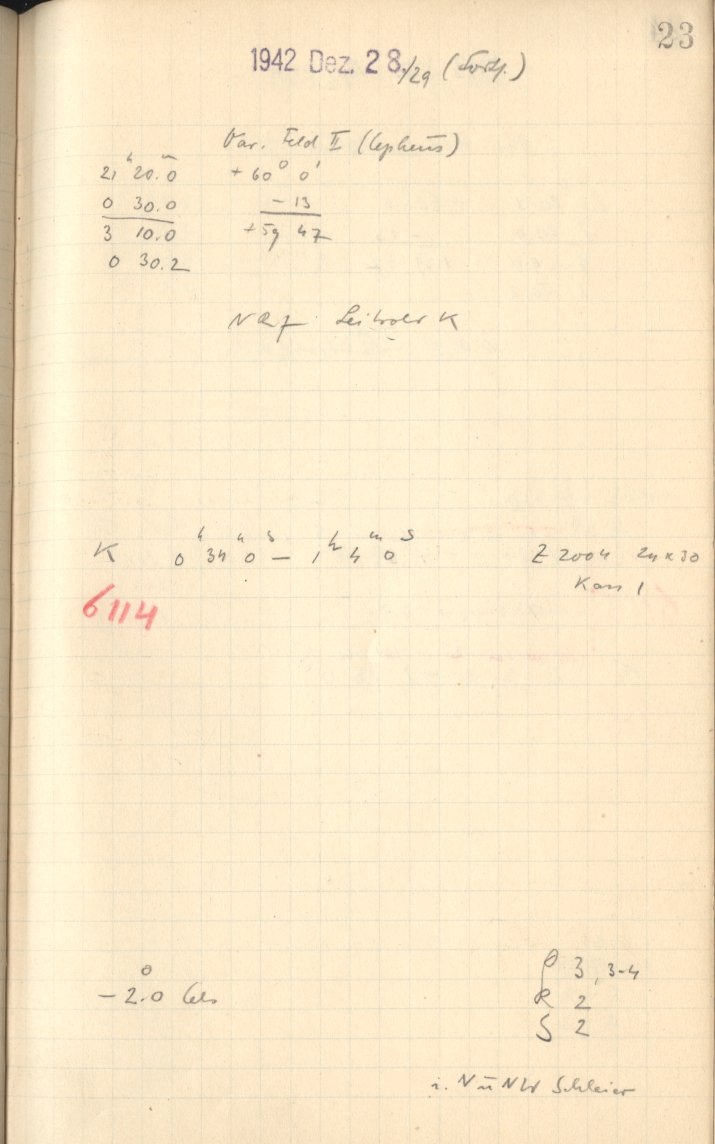 23
1942 Dez. 28./29 (Forts.)
Var. Feld II (Cepheus)
21h 20.m0 +60° 0'
0 30.0 - 13
3 10.0 +59 47
0 30.2
Leitrohr K
K 0h 34m 0s — 1h 4m 0s Z 2004 24 x 30
Kass 1
6114
- 2.°0 Cels
3, 3-4
R 2
S 2
i. N u NW Schleier